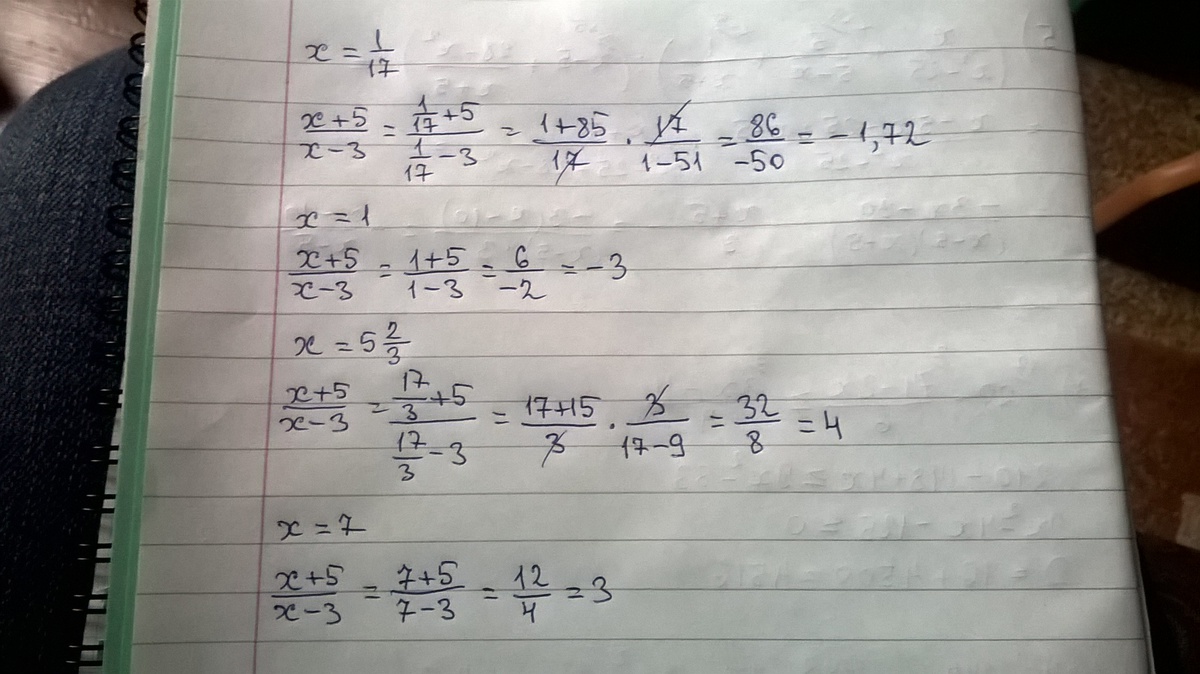 x = 1/17
(x+5)/(x-3) = (1/17+5)/(1/17-3) = (1+85)/17 · 17/(1-51) = 86/-50 = -1,72
x = 1
(x+5)/(x-3) = (1+5)/(1-3) = 6/-2 = -3
x = 5 2/3
(x+5)/(x-3) = (17/3+5)/(17/3-3) = (17+15)/3 · 3/(17-9) = 32/8 = 4
x = 7
(x+5)/(x-3) = (7+5)/(7-3) = 12/4 = 3